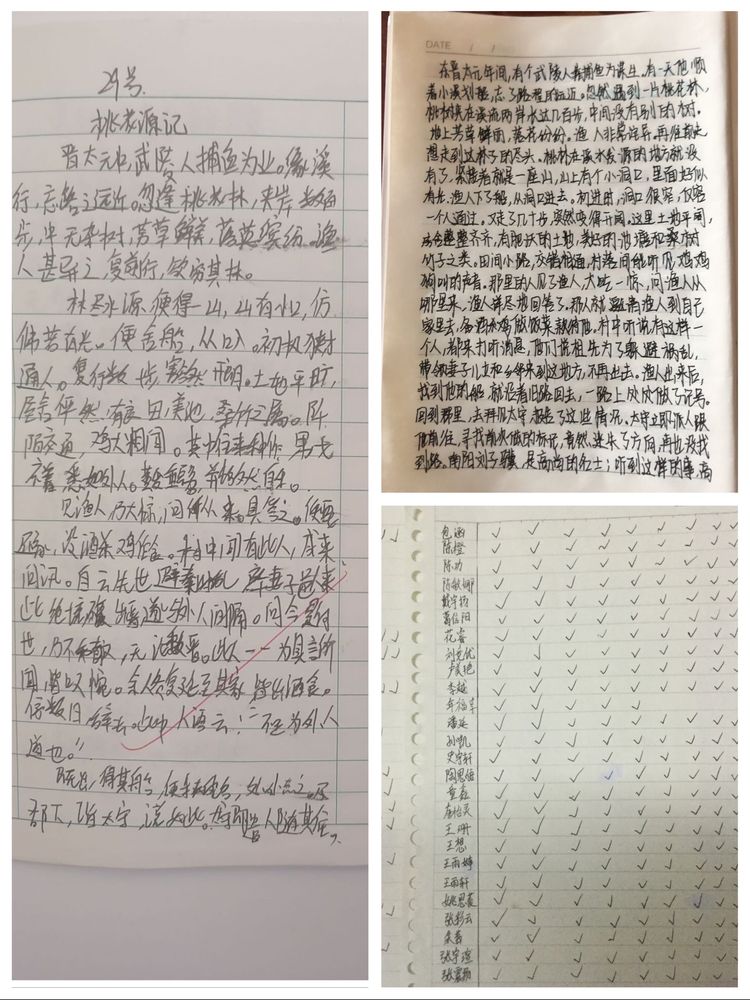 29号.
桃花源记
晋太元中,武陵人捕鱼为业。缘溪
行,忘路之远近。忽逢桃花林,夹岸数百
步,中无杂树,芳草鲜美,落英缤纷。渔
人甚异之,复前行,欲穷其林。
林尽水源,便得一山,山有小口,仿
佛若有光。便舍船,从口入。初极狭才
通人。复行数步,豁然开朗。土地平旷,
屋舍俨然,有良田美池,桑竹之属。阡
陌交通,鸡犬相闻。其中往来种作,男女
衣着,悉如外人。黄发垂髫,并怡然自乐。
见渔人,乃大惊,问所从来。具答之。便要
还家,设酒杀鸡作食。村中闻有此人,咸来
问讯。自云先世避秦时乱,率妻子邑人来
此绝境,
世,乃不知有汉,无论魏晋。此人一一为具言所
闻,皆叹惋。余人各复延至其家,皆出酒食。
停数日,辞去。此中人语云:"不足为外人
道也。"
既出,得其船,便扶向路,处处志之。及
郡下,诣太守,说如此。守即遣人随其往,
DATE / /
东晋太元年间,有个武陵人靠捕鱼为谋生。有一天他顺
着小溪划船,忘了路程的远近。忽然遇到一片桃花林,
桃树夹在溪流两岸,长达几百步,中间没有别的树。
地上芳草鲜丽,落花纷纷。渔人非常诧异。再往前走
想走到这林子的尽头。桃林在溪水发源的地方就没
有了,紧接着就是一座山,山上有个小洞口,里面好似
有光。渔人下了船,从洞口进去。初进时,洞口很窄,仅容
一个人通过。又走了几十步,突然变得开阔。这里土地平坦,
房舍整整齐齐,有肥沃的土地,美好的池塘和桑树
竹子之类。田间小路,交错相通,村落间能听见鸡鸣
狗叫的声音。那里的人见了渔人,大吃一惊,问渔人从
哪里来,渔人详尽地回答了。那人就邀请渔人到自己
家里去,备酒杀鸡做饭菜款待他。村中听说有这样一
个人,都来打听消息,他们说祖先为了躲避祸乱,
带领妻子儿女和乡邻来到这地方,不再出去。渔人出来后,
找到他的船,就沿着旧路回去,一路上处处做了记号。
回到郡里,去拜见太守,报告了这些情况。太守立即派人跟
他前往,寻找前次做的标记,竟然迷失了方向,再也没找
到路。南阳刘子骥,是高尚的名士;听到这样的事,高
包涵
陈橙
陈功
陈敏娜
葛信阳
花姿
刘文优
卢艮艳
李越
年福享
潘延
孙凯
史宇轩
陶思恒
童鑫
唐怡灵
王珊
王想
王雨婷
王雨轩
姚思蔓
张彩云
朱蕾
张宇渲
张震勋